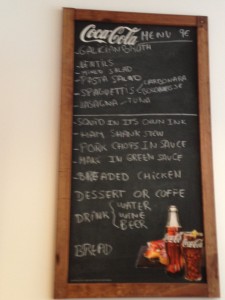 Coca-Cola MENU 9€
-GALICIAN BROTH
-LENTILS
-MIXED SALAD
-PASTA SALAD
-SPAGHETTIS CARBONARA
BOLOGNESE
-LASAGNA - TUNA
-SQUID IN ITS OWN INK
-HAM SHANK STEW
-PORK CHOPS IN SAUCE
-HAKE IN GREEN SAUCE
-BREADED CHICKEN
DESSERT OR COFFE
DRINK WATER
WINE
BEER
BREAD
Coca-Cola